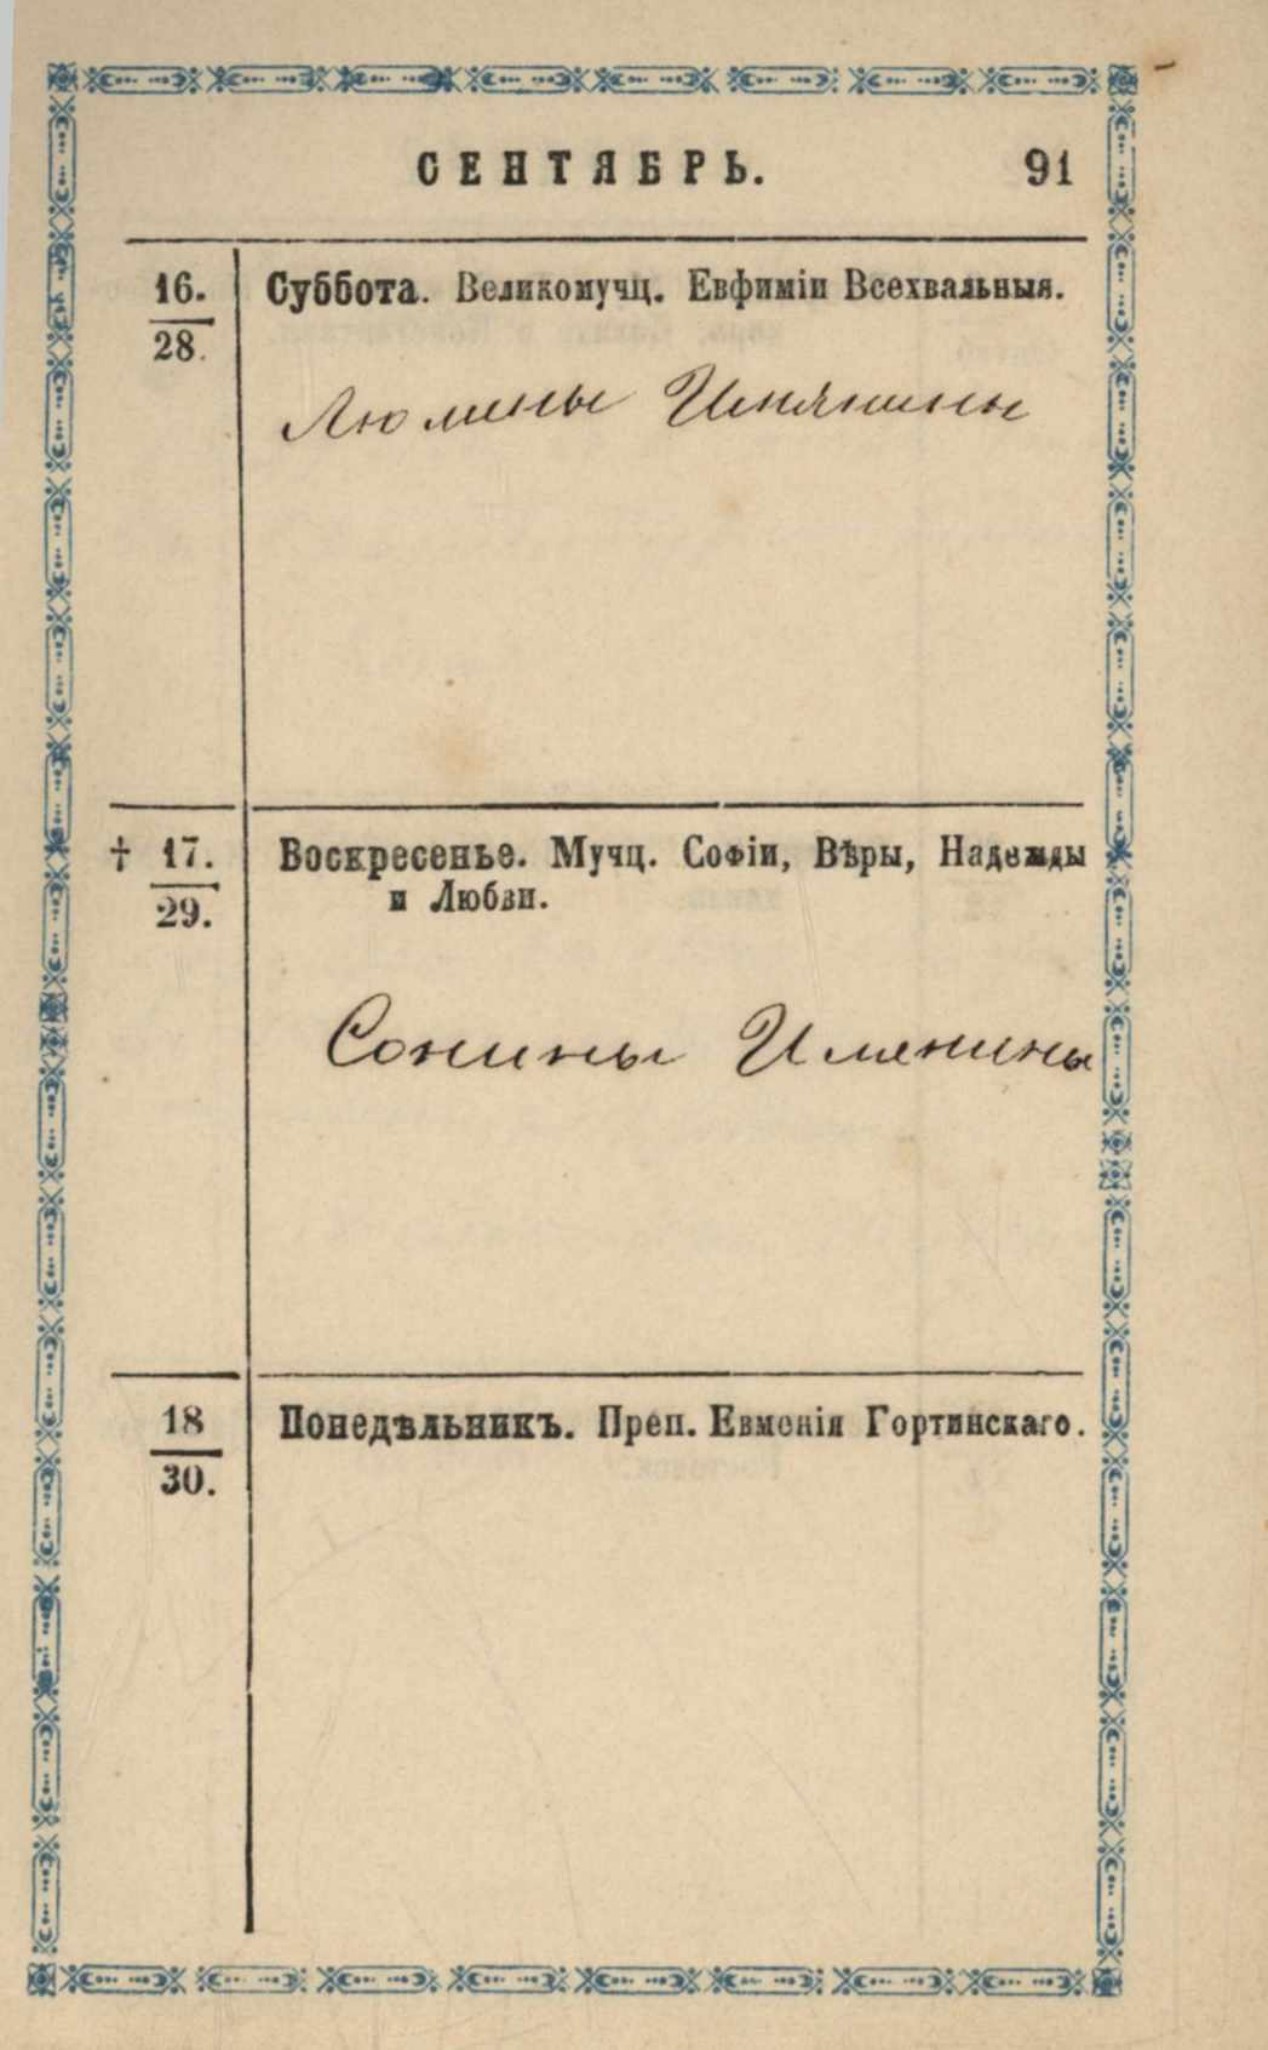 СЕНТЯБРЬ. 91
16. Суббота. Великомучц. Евфиміи Всехвальныя.
28.
Люмины Имянины
† 17. Воскресенье. Мучц. Софіи, Вѣры, Надежды
29. и Любви.
Сонины Имянины
18 Понедѣльникъ. Преп. Евменія Гортинскаго.
30.